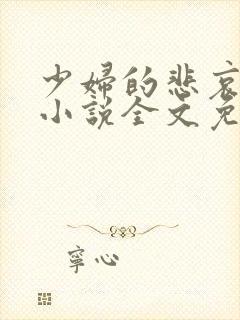 少婦的悲哀
小說全文免
寧心